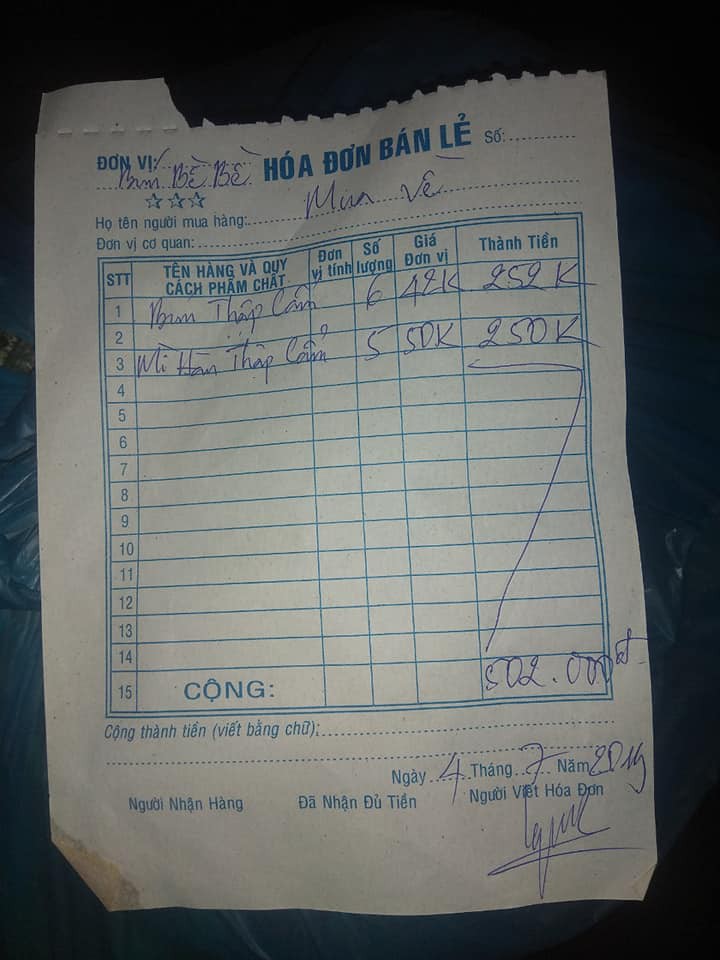 ĐƠN VỊ: Bún Bề Bề HÓA ĐƠN BÁN LẺ Số:
Họ tên người mua hàng: Mua Về
Đơn vị cơ quan:
STT TÊN HÀNG VÀ QUY CÁCH PHẨM CHẤT Đơn vị tính Số lượng Giá Đơn vị Thành Tiền
1 Bún Thập Cẩm 6 42K 252K
2
3 Mì Hàn Thập Cẩm 5 50K 250K
4
5
6
7
8
9
10
11
12
13
14
15 CỘNG: 502.000đ
Cộng thành tiền (viết bằng chữ):
Ngày 4 Tháng 7 Năm 2019
Người Nhận Hàng Đã Nhận Đủ Tiền Người Viết Hóa Đơn